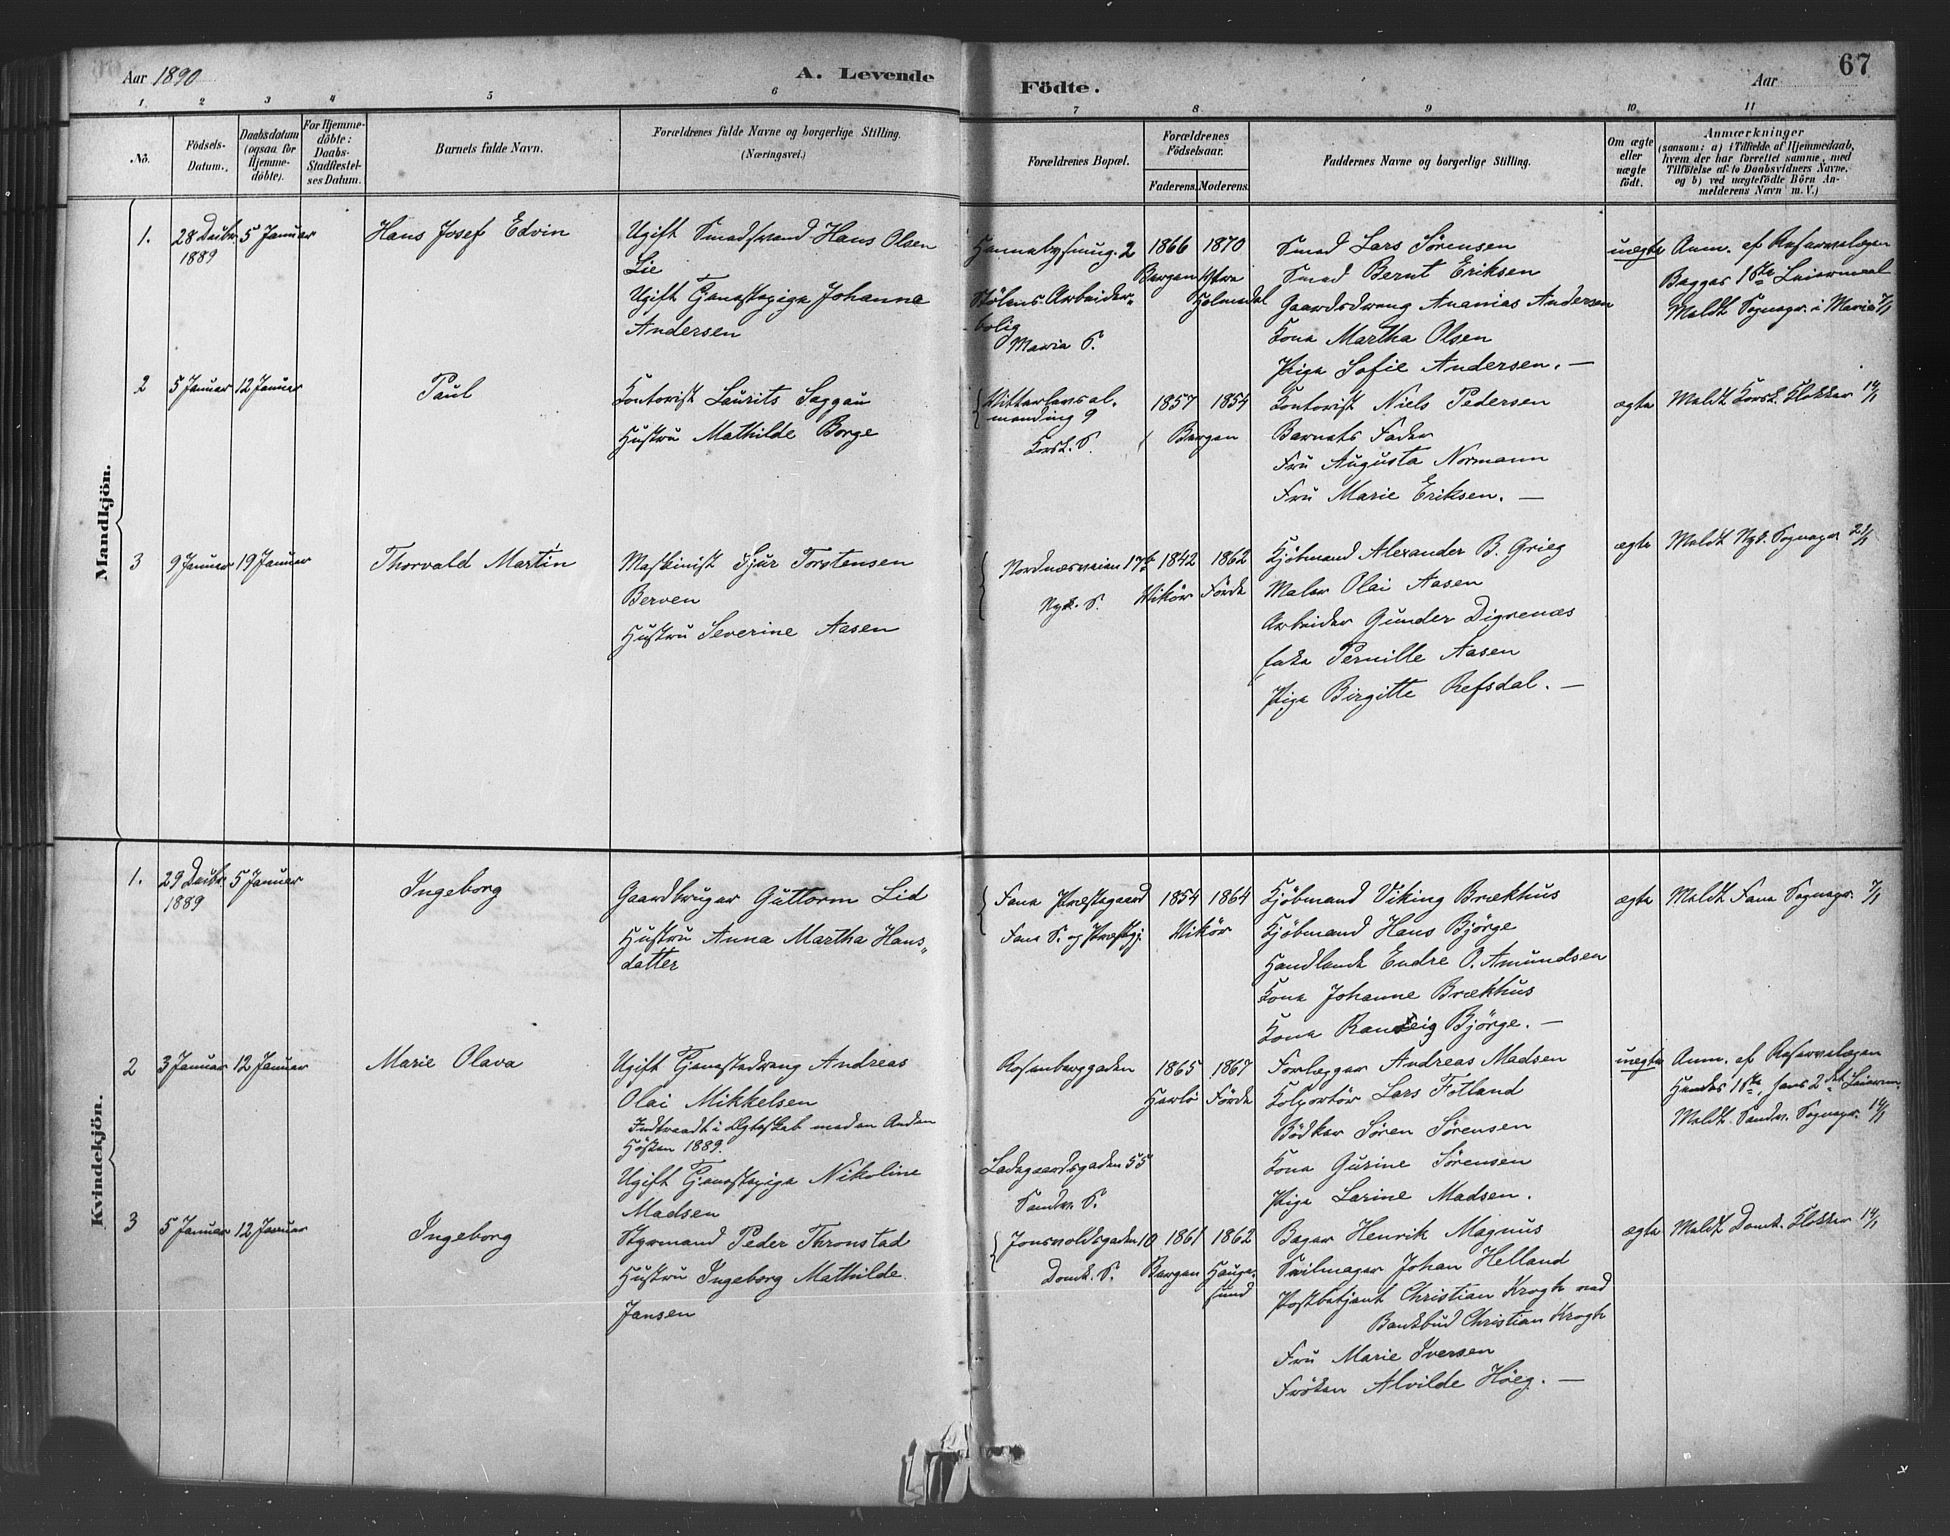 Aar 1890
A. Levende
Födte.
Aar
67
1 2 3 4 5 6 7 8 9 10 11
No.
Födsels-Datum.
Daabsdatum (ogsaa for Hjemme-döbte).
For Hjemme-döbte: Daabs-Stadfestel-ses Datum.
Barnets fulde Navn.
Forældrenes fulde Navne og borgerlige Stilling.
(Næringsvei.)
Forældrenes Bopæl.
Forældrenes Födselsaar.
Faderens. Moderens.
Faddernes Navne og borgerlige Stilling.
Om ægte eller uægte födt.
Anmærkninger
(saasom: a) i Tilfælde af Hjemmedaab, hvem der har forrettet samme, med Tilföielse af to Daabsvidners Navne, og b) ved uægtefödte Börn An-melderens Navn m. V.)
Mandkjön.
1. 28 Decbr 1889
5 Januar
Hans Josef Edvin
Ugift Smedsvend Hans Olsen
Lie
Ugift Tjenestepige Johanne
Andersen
2
Stølens Arbeider-
bolig
Maria S.
1866 1870
Bergen Holmedal
Smed Lars Sørensen
Smed Bernt Eriksen
Gaardsdreng Ananias Andersen
Kone Martha Olsen
Pige Sofie Andersen. —
uægte
Anm. af Reservelægen
Begges 1ste Leiermaal
Meldt Sognepr. i Maria 7/1
2 5 Januar 12 Januar
Paul
Kontorist Laurits Saggau
Hustru Mathilde Borge
Witterlevsal-
mending 9
Korsk. S.
1857 1854
Bergen
Kontorist Niels Pedersen
Barnets Fader
Fru Augusta Normann
Fru Marie Eriksen. —
ægte
Meldt Korsk. Klokker 14/1
3 9 Januar 19 Januar
Thorvald Martin
Maskinist Sjur Torstensen
Berven
Hustru Severine Aasen
Nordnæsveien 17b
Nyk. S.
1842 1862
Wikör Förde
Kjöbmand Alexander B. Grieg
Maler Olai Aasen
Arbeider Gunder Digrenæs
Enke Pernille Aasen
Pige Birgitte Refsdal. —
ægte
Meldt Nyk. Sognepr 21/1
Kvindekjön.
1. 29 Decbr 1889
5 Januar
Ingeborg
Gaardbruger Guttorm Lid
Hustru Anna Martha Hans-
datter
Fana Præstegaard
Fana S. og Præstgj.
1854 1864
Wikör
Kjöbmand Viking Brækhus
Kjöbmand Hans Björge
Handlende Endre O. Amundsen
Kone Johanne Brækhus
Kone Ranveig Björge. —
ægte
Meldt Fana Sognepr. 7/1
2 3 Januar 12 Januar
Marie Olava
Ugift Tjenestedreng Andreas
Olai Mikkelsen
Indtraadt i Ægteskab med en Anden
Hösten 1889.
Ugift Tjenestepige Nikoline
Madsen
Rosenberggaden
Ladegaardsgaden 55
Sandv. S.
1865 1867
Herlö Förde
Forlægger Andreas Madsen
Kolportör Lars Fötland
Bödker Søren Sørensen
Kone Gurine Sørensen
Pige Larine Madsen.
uægte
Anm. af Reservelægen
Hendes 1ste, hans 2det Leierm.
Meldt Sandv. Sognepr. 14/1
3 5 Januar 12 Januar
Ingeborg
Styrmand Peder Thronstad
Hustru Ingeborg Mathilde
Jansen
Jonsvoldsgaden 10
Domk. S.
1861 1862
Bergen Hauge-
sund
Bager Henrik Magnus
Seilmager Johan Helland
Postbetjent Christian Krogh ved
Bankbud Christian Krogh
Fru Marie Iversen
Fröken Alvilde Höeg. —
ægte
Meldt Domk. Klokker 14/1